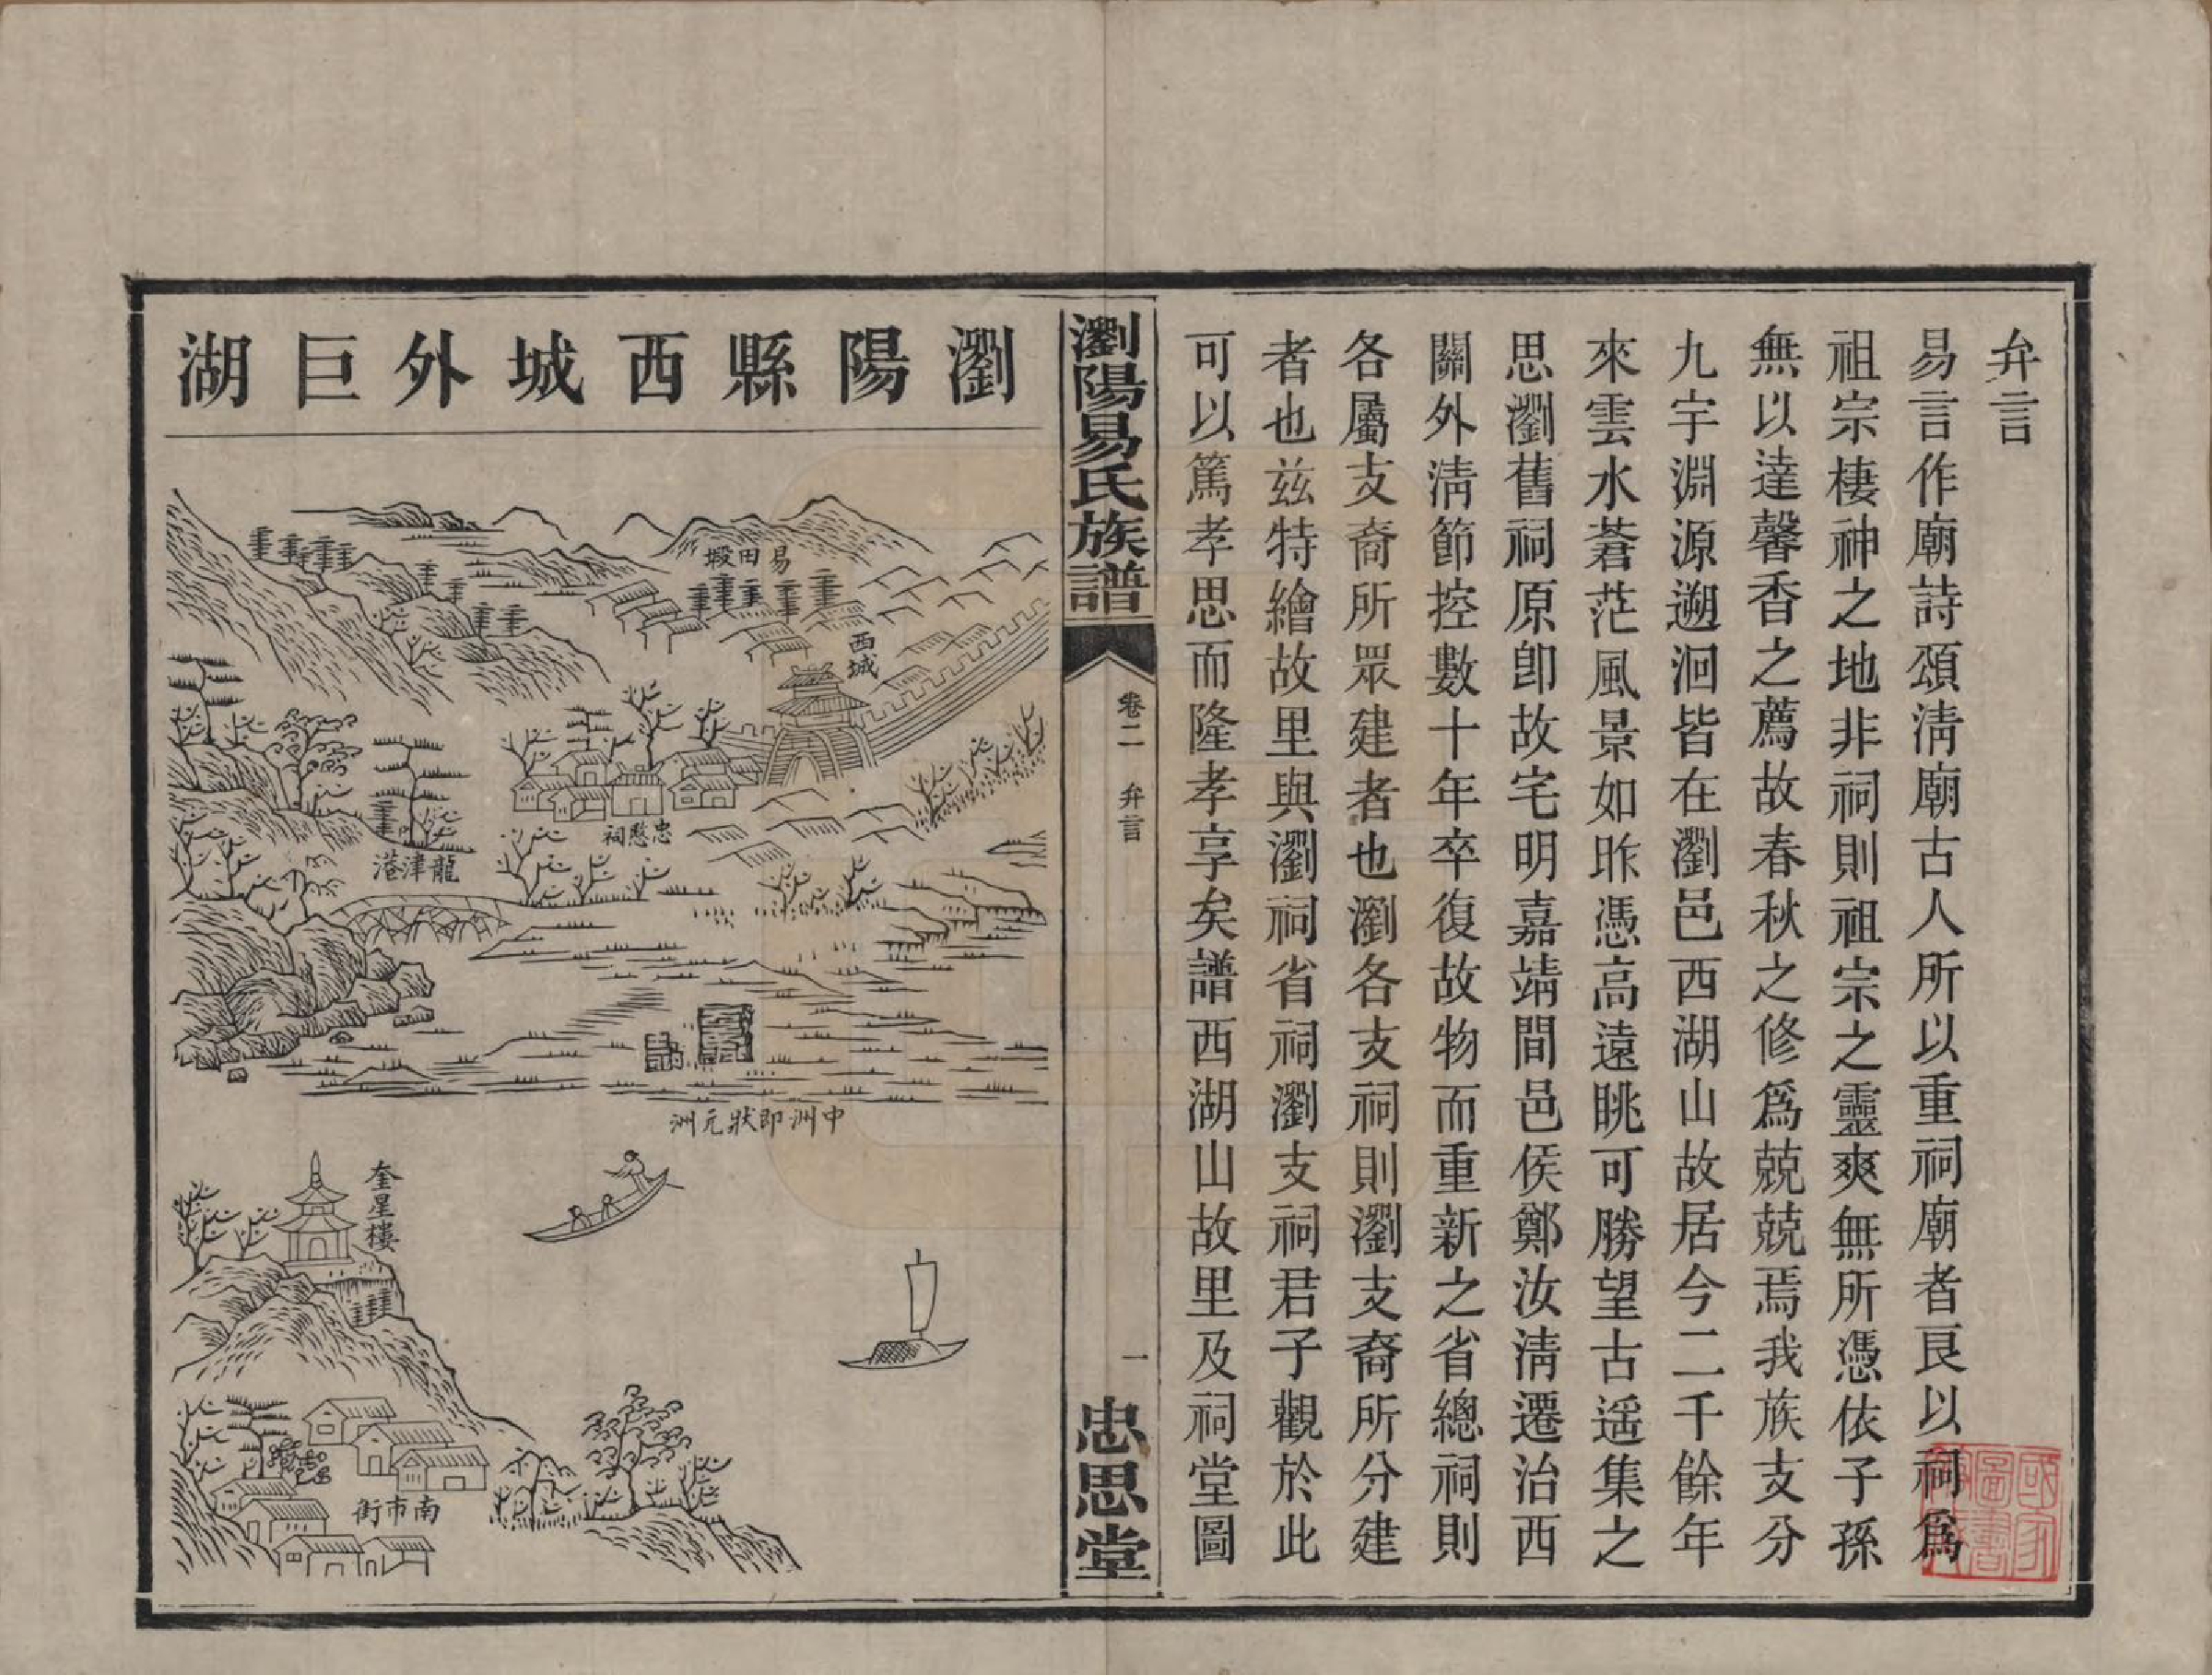 弁言
易言作廟詩頌淸廟古人所以重祠廟者良以祠爲
祖宗棲神之地非祠則祖宗之靈爽無所憑依子孫
無以達馨香之薦故春秋之修爲兢兢焉我族支分
九宇淵源遡洄皆在瀏邑西湖山故居今二千餘年
來雲水蒼茫風景如昨憑高遠眺可勝望古遥集之
思瀏舊祠原卽故宅明嘉靖間邑侯鄭汝淸遷治西
關外淸節控數十年卒復故物而重新之省總祠則
各屬支裔所眾建者也瀏各支祠則瀏支裔所分建
者也兹特繪故里與瀏祠省祠瀏支祠君子觀於此
可以篤孝思而隆孝享矣譜西湖山故里及祠堂圖
瀏陽易氏族譜
卷二 弁言
一
忠思堂
瀏陽縣西城外巨湖
易田塅
西城
忠愍祠
龍津港
中洲即狀元洲
奎星樓
南市街